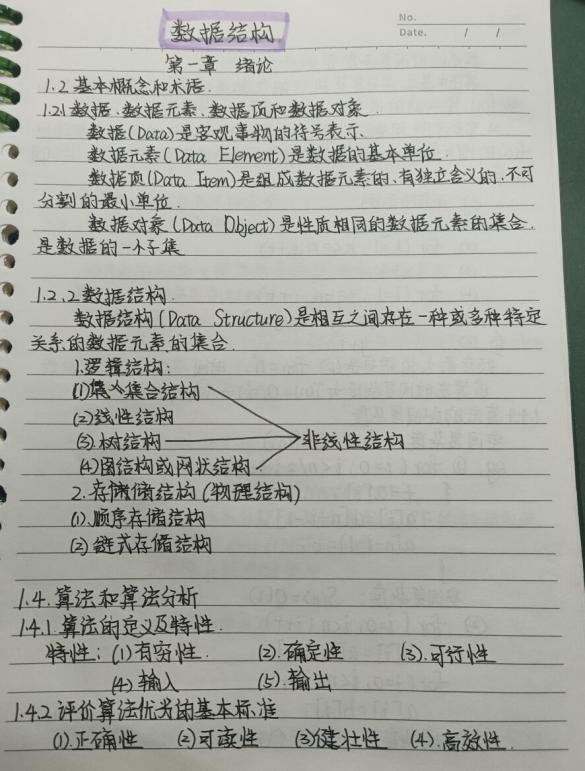 No.
Date. / /
数据结构
第一章 绪论
1.2基本概念和术语.
1.2.1数据、数据元素、数据项和数据对象
数据(Data)是客观事物的符号表示.
数据元素(Data Element)是数据的基本单位.
数据项(Data Item)是组成数据元素的、有独立含义的、不可
分割的最小单位.
数据对象(Data Object)是性质相同的数据元素的集合.
是数据的一个子集
1.2.2数据结构.
数据结构(Data Structure)是相互之间存在一种或多种特定
关系的数据元素的集合.
1.逻辑结构:
(1)集合结构
(2)线性结构
(3).树结构 非线性结构
(4)图结构或网状结构
2.存储结构(物理结构)
(1).顺序存储结构
(2)链式存储结构
1.4.算法和算法分析
1.4.1.算法的定义及特性.
特性: (1)有穷性. (2).确定性 (3).可行性
(4)输入 (5).输出
1.4.2评价算法优劣的基本标准
(1).正确性 (2)可读性 (3)健壮性 (4).高效性.